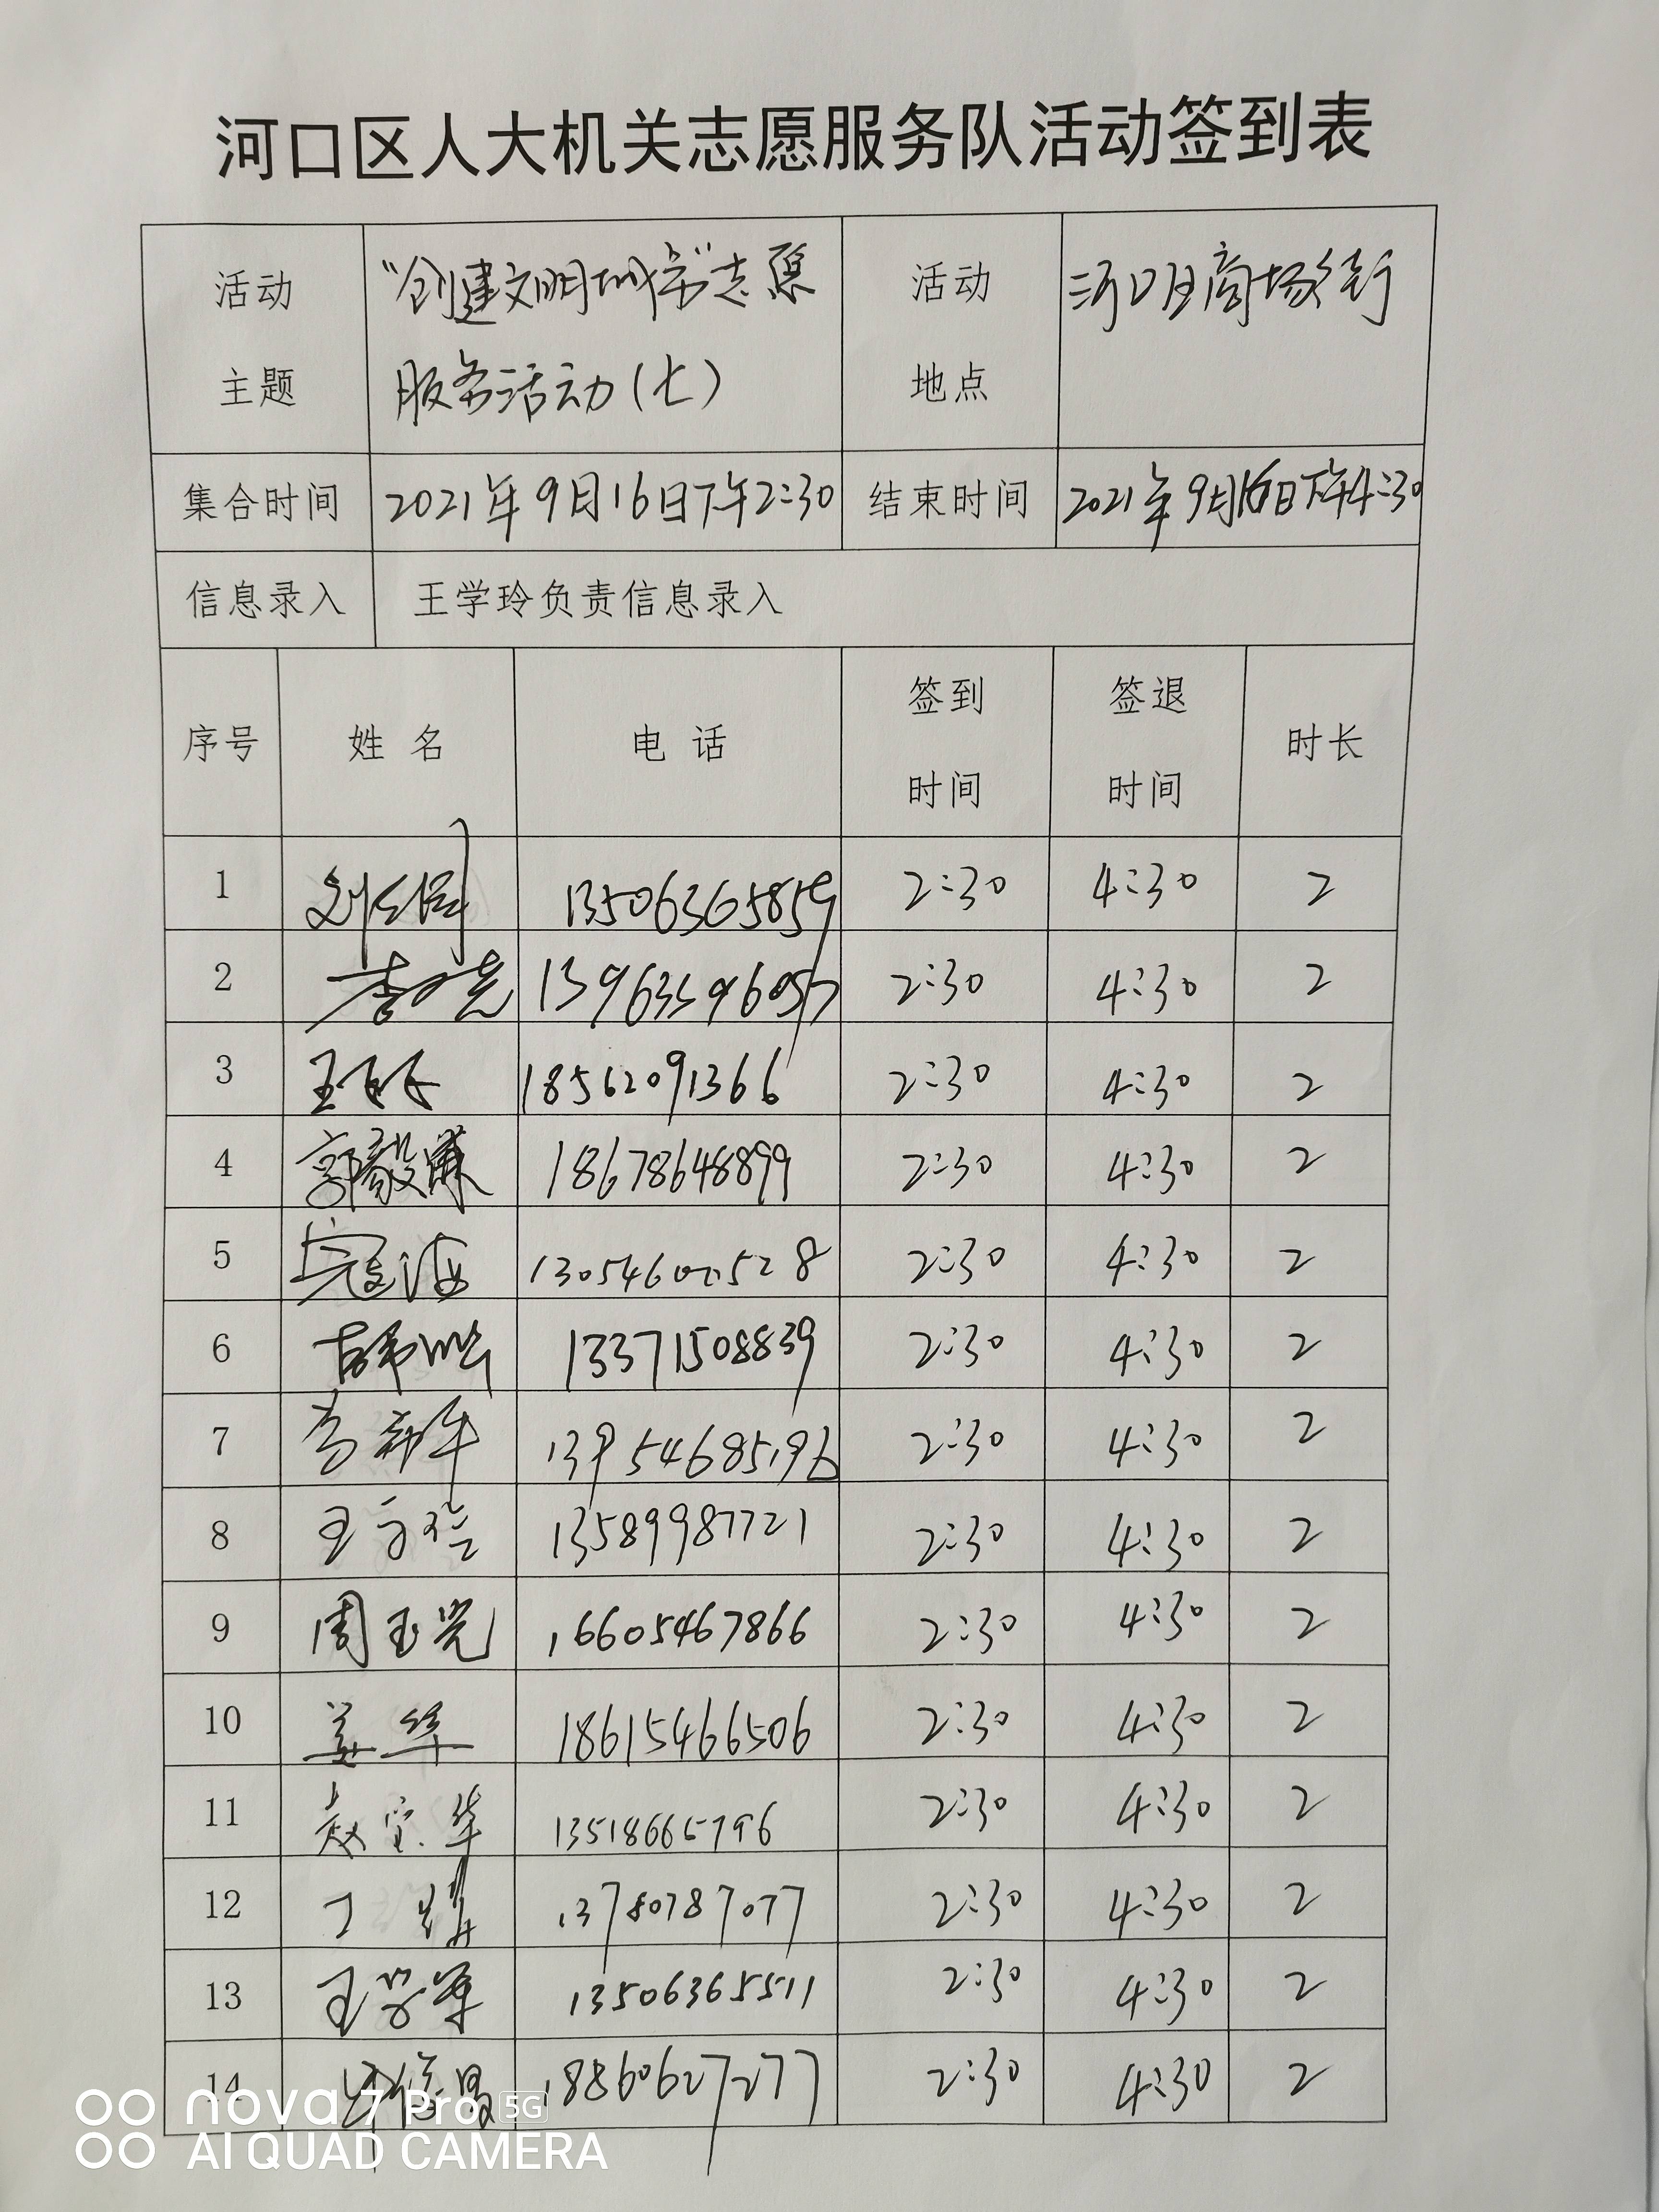 河口区人大机关志愿服务队活动签到表
活动主题 "创建文明城市"志愿服务活动(七) 活动地点 河口区商场街
集合时间 2021年9月16日下午2:30 结束时间 2021年9月16日下午4:30
信息录入 王学玲负责信息录入
序号 姓名 电话 签到时间 签退时间 时长
1 13506365859 2:30 4:30 2
2 2:30 4:30 2
3 18562091366 2:30 4:30 2
4 郭毅 18678648899 2:30 4:30 2
5 寇海 2:30 4:30 2
6 13371508839 2:30 4:30 2
7 13954685196 2:30 4:30 2
8 13589987721 2:30 4:30 2
9 周玉光 16605467866 2:30 4:30 2
10 姜华 18615466506 2:30 4:30 2
11 赵宝华 2:30 4:30 2
12 13780787077 2:30 4:30 2
13 王学军 13506365511 2:30 4:30 2
14 18860627277 2:30 4:30 2
nova 7 Pro 5G
AI QUAD CAMERA